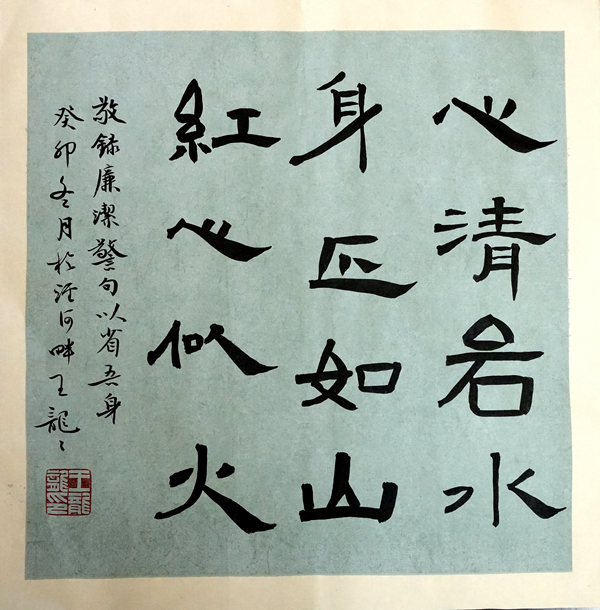 心清若水
身正如山
紅心似火
敬録廉潔警句以省吾身
癸卯冬月於泾河畔王龍
王龍
龍印